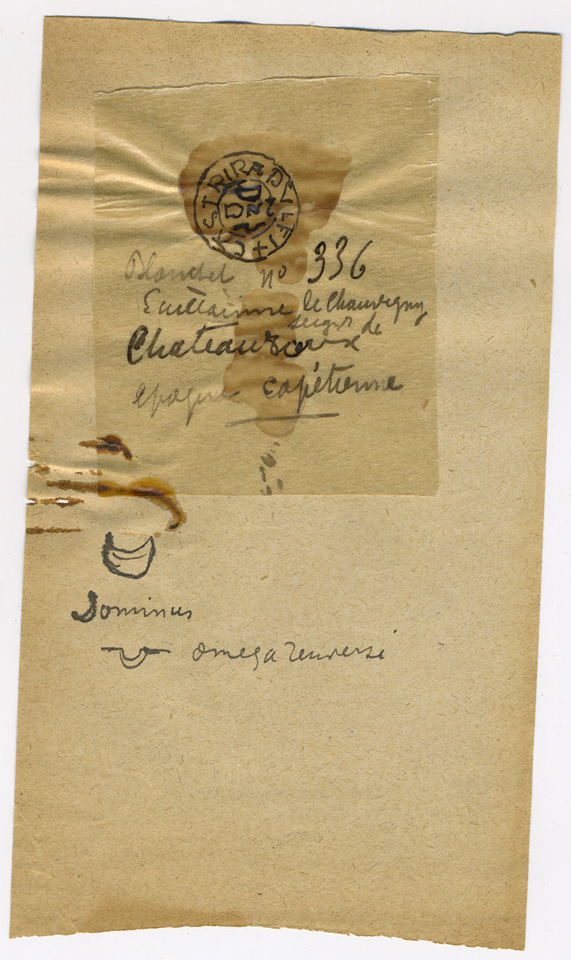 + CASTRI RADVLFI
Blanchet no 336
Guillaume de Chauvigny
seigr de
Chateauroux
epoque capétienne
Dominus
omega renversé